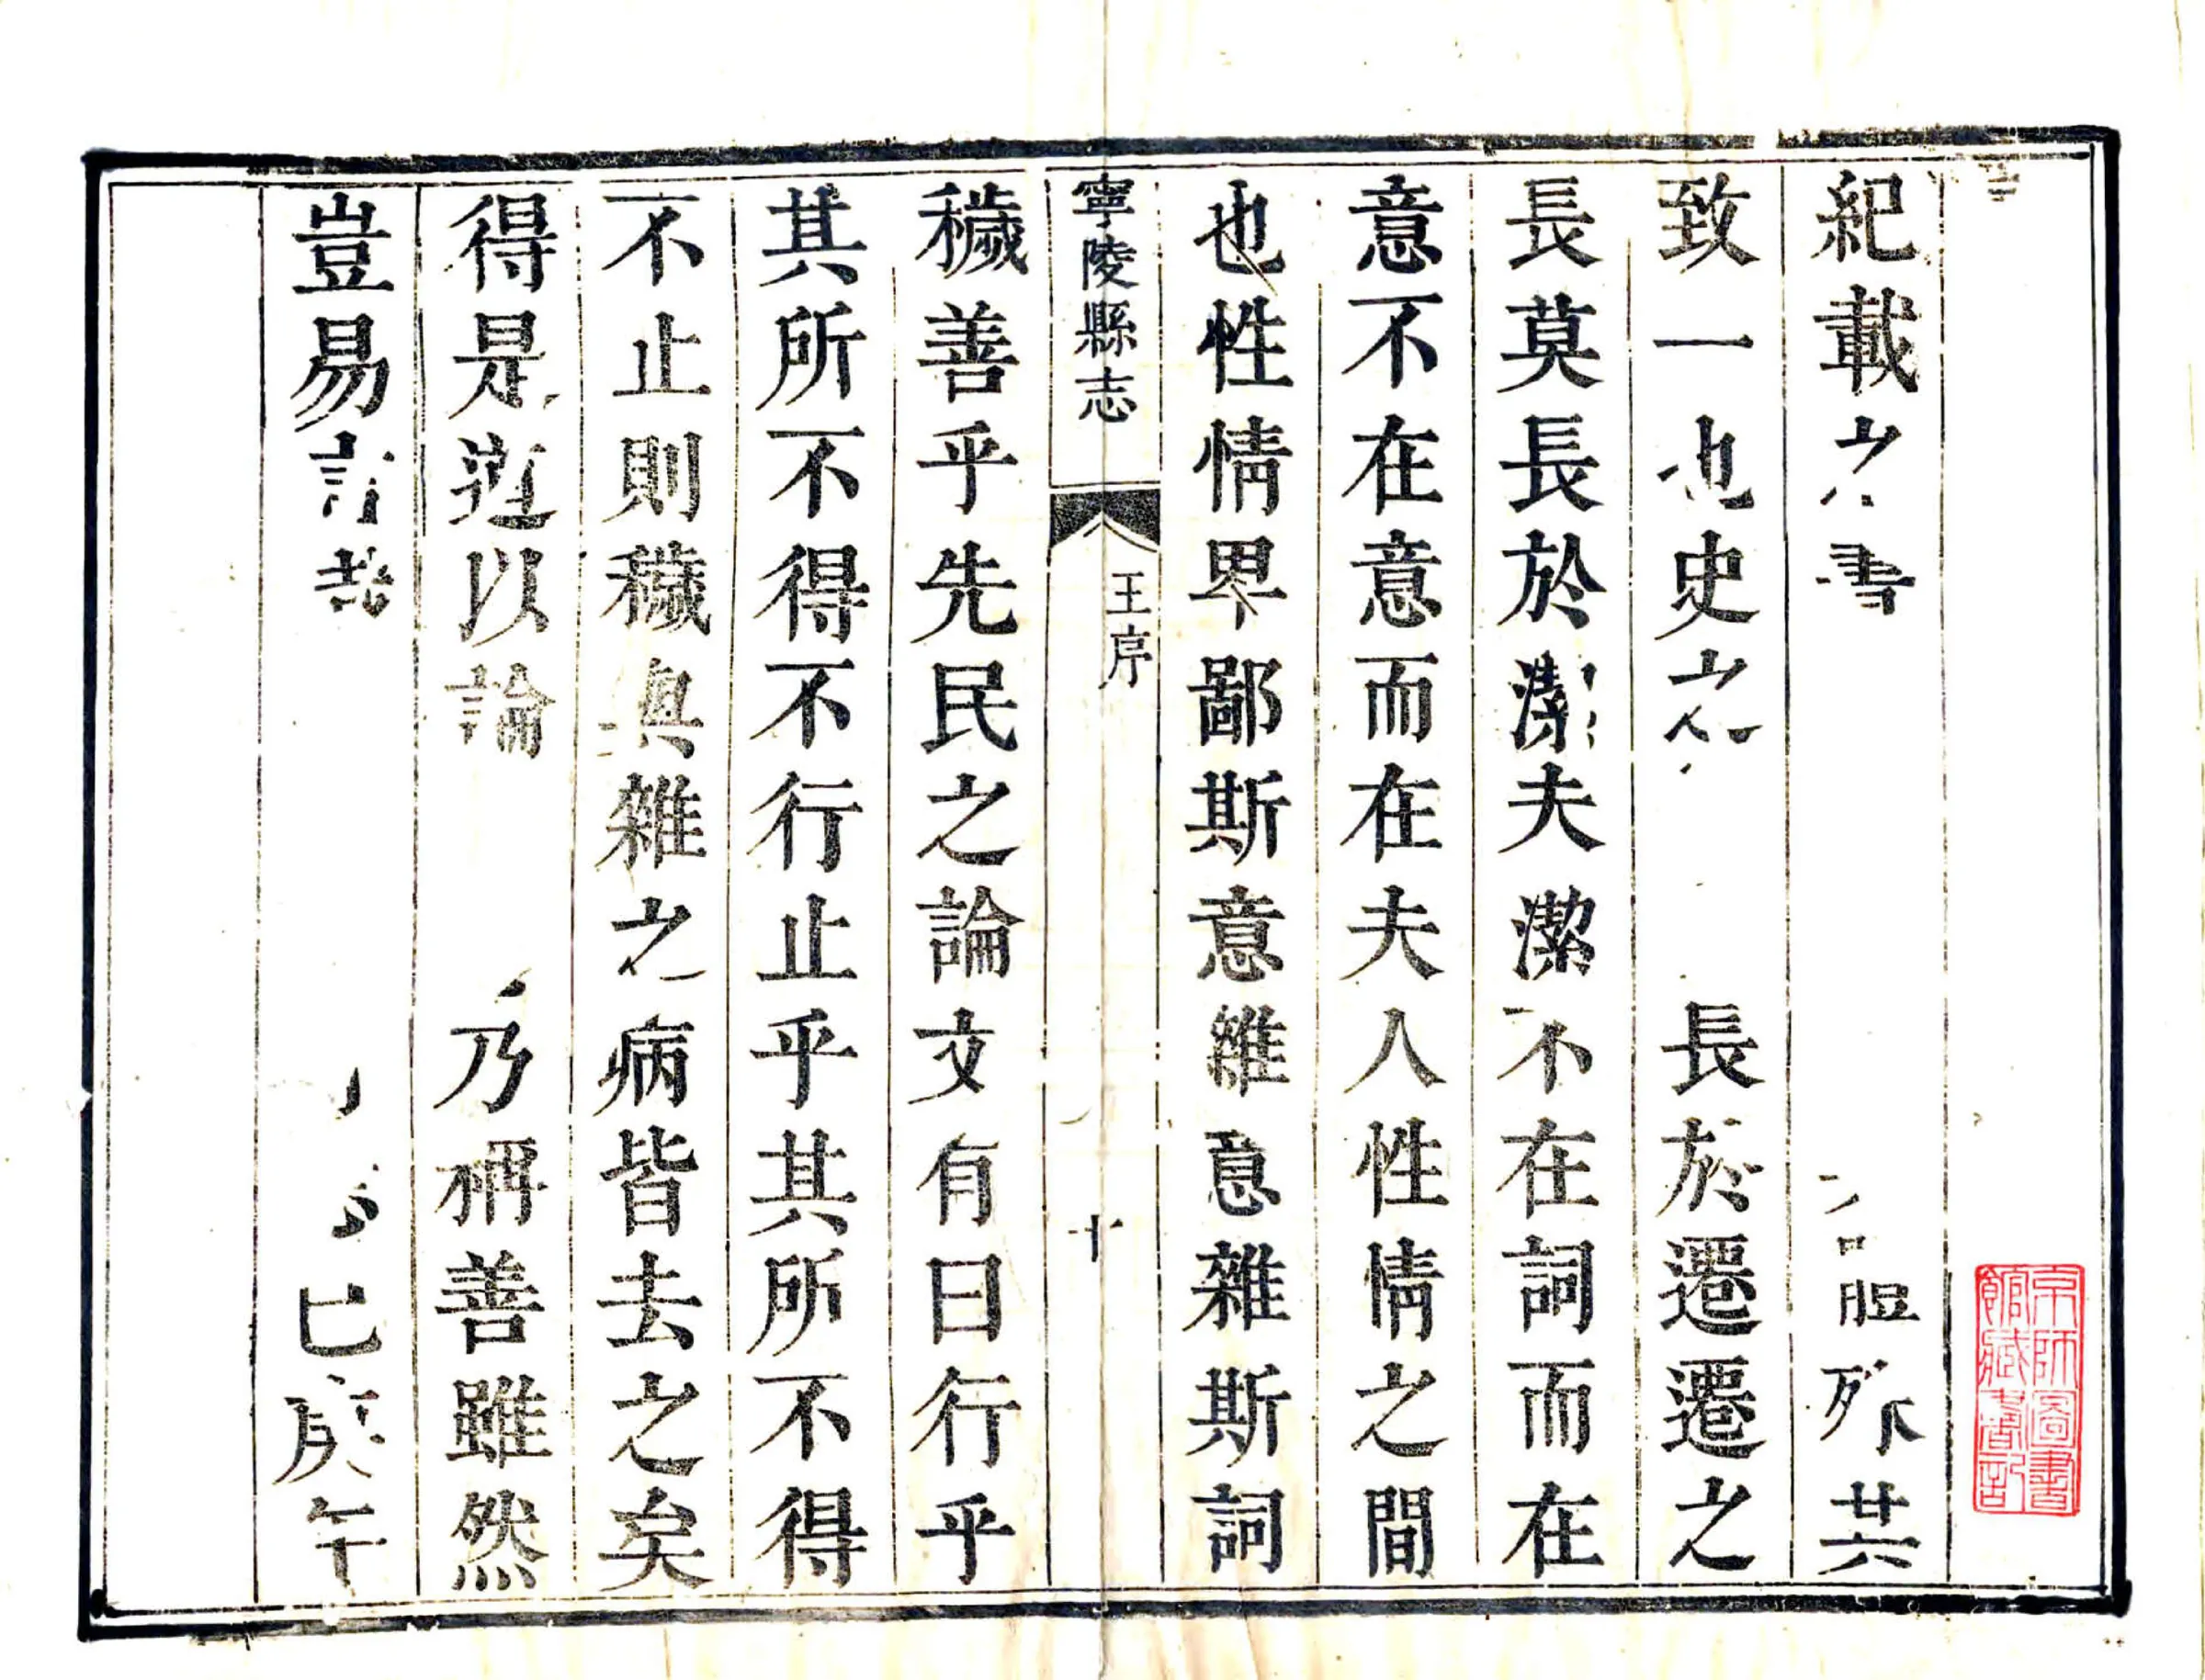 紀載之書體殊其
致一也史之長於遷遷之
長莫長於潔夫潔不在詞而在
意不在意而在夫人性情之間
也性情卑鄙斯意雜意雜斯詞
寧陵縣志
王序
十
穢善乎先民之論文有曰行乎
其所不得不行止乎其所不得
不止則穢與雜之病皆去之矣
得是道以論乃稱善雖然
豈易言哉已庚午
京師圖書館藏書記